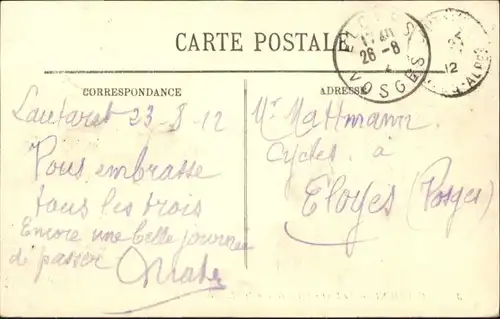 CARTE POSTALE
CORRESPONDANCE
ADRESSE
ELOYES
26-8
VOSGES
12
Lautaret 23-8-12
Vous embrasse
tous les trois
Encore une belle journée
de passée
Mr Mattmann
Cycles à
Eloyes (Vosges)